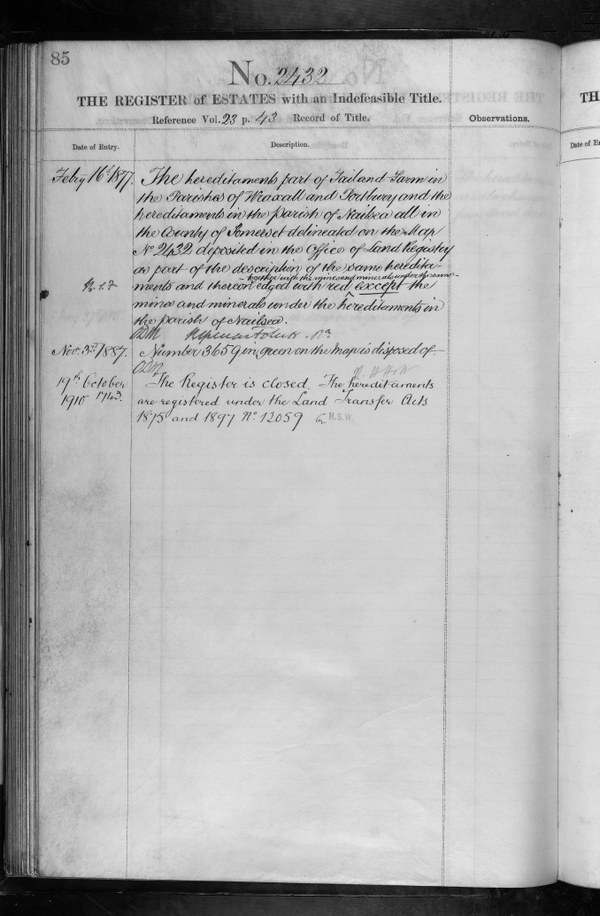 85
No. 2432
THE REGISTER of ESTATES with an Indefeasible Title.
Reference Vol. 23 p. 43 Record of Title.
Observations.
Date of Entry.
Description.
Feby 16th 1877.
The hereditaments part of Failand Farm in
the Parishes of Wraxall and Portbury and the
hereditaments in the parish of Nailsea all in
the County of Somerset delineated on the Map
No 2432 deposited in the Office of Land Registry
as part of the description of the same heredita-
together with the mines and minerals under the same
ments and thereon edged with red except the
mines and minerals under the hereditaments in
the parish of Nailsea.
Nov. 3rd 1887.
Number 365 9 in green on the map is disposed of
19th October
1910
The Register is closed. The hereditaments
are registered under the Land Transfer Acts
1875 and 1897 No. 12059
H.S.W.
TH
Date of En